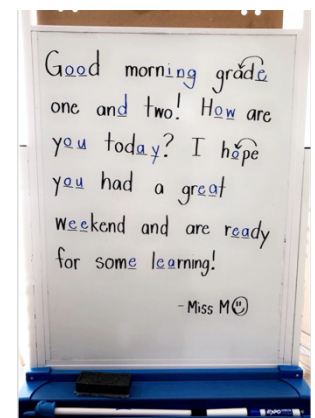 Good morning grade
one and two! How are
you today? I hope
you had a great
weekend and are ready
for some learning!
- Miss M☺
EXPO